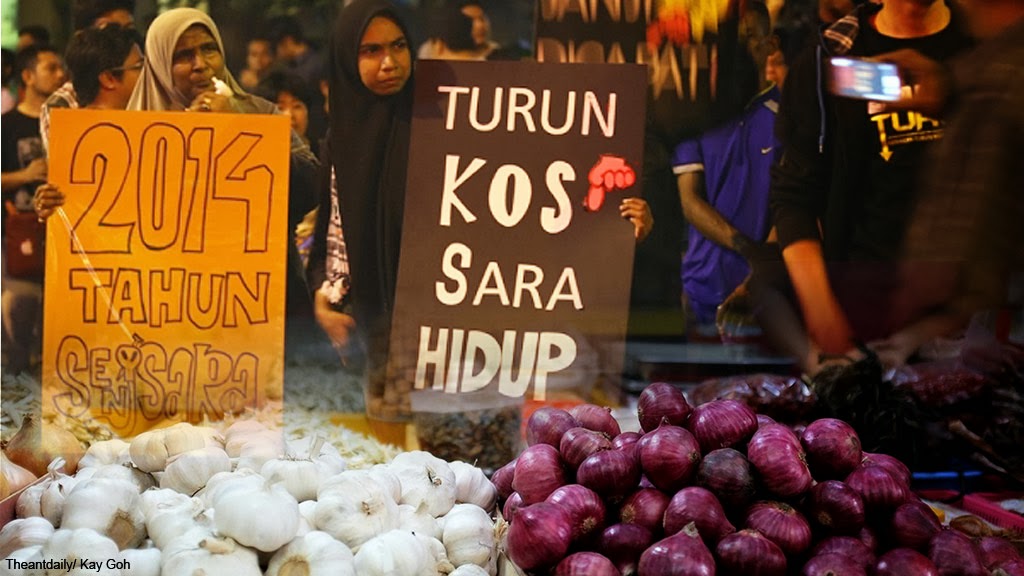 2014
TAHUN
TURUN
KOS
SARA
HIDUP
Theantdaily/ Kay Goh